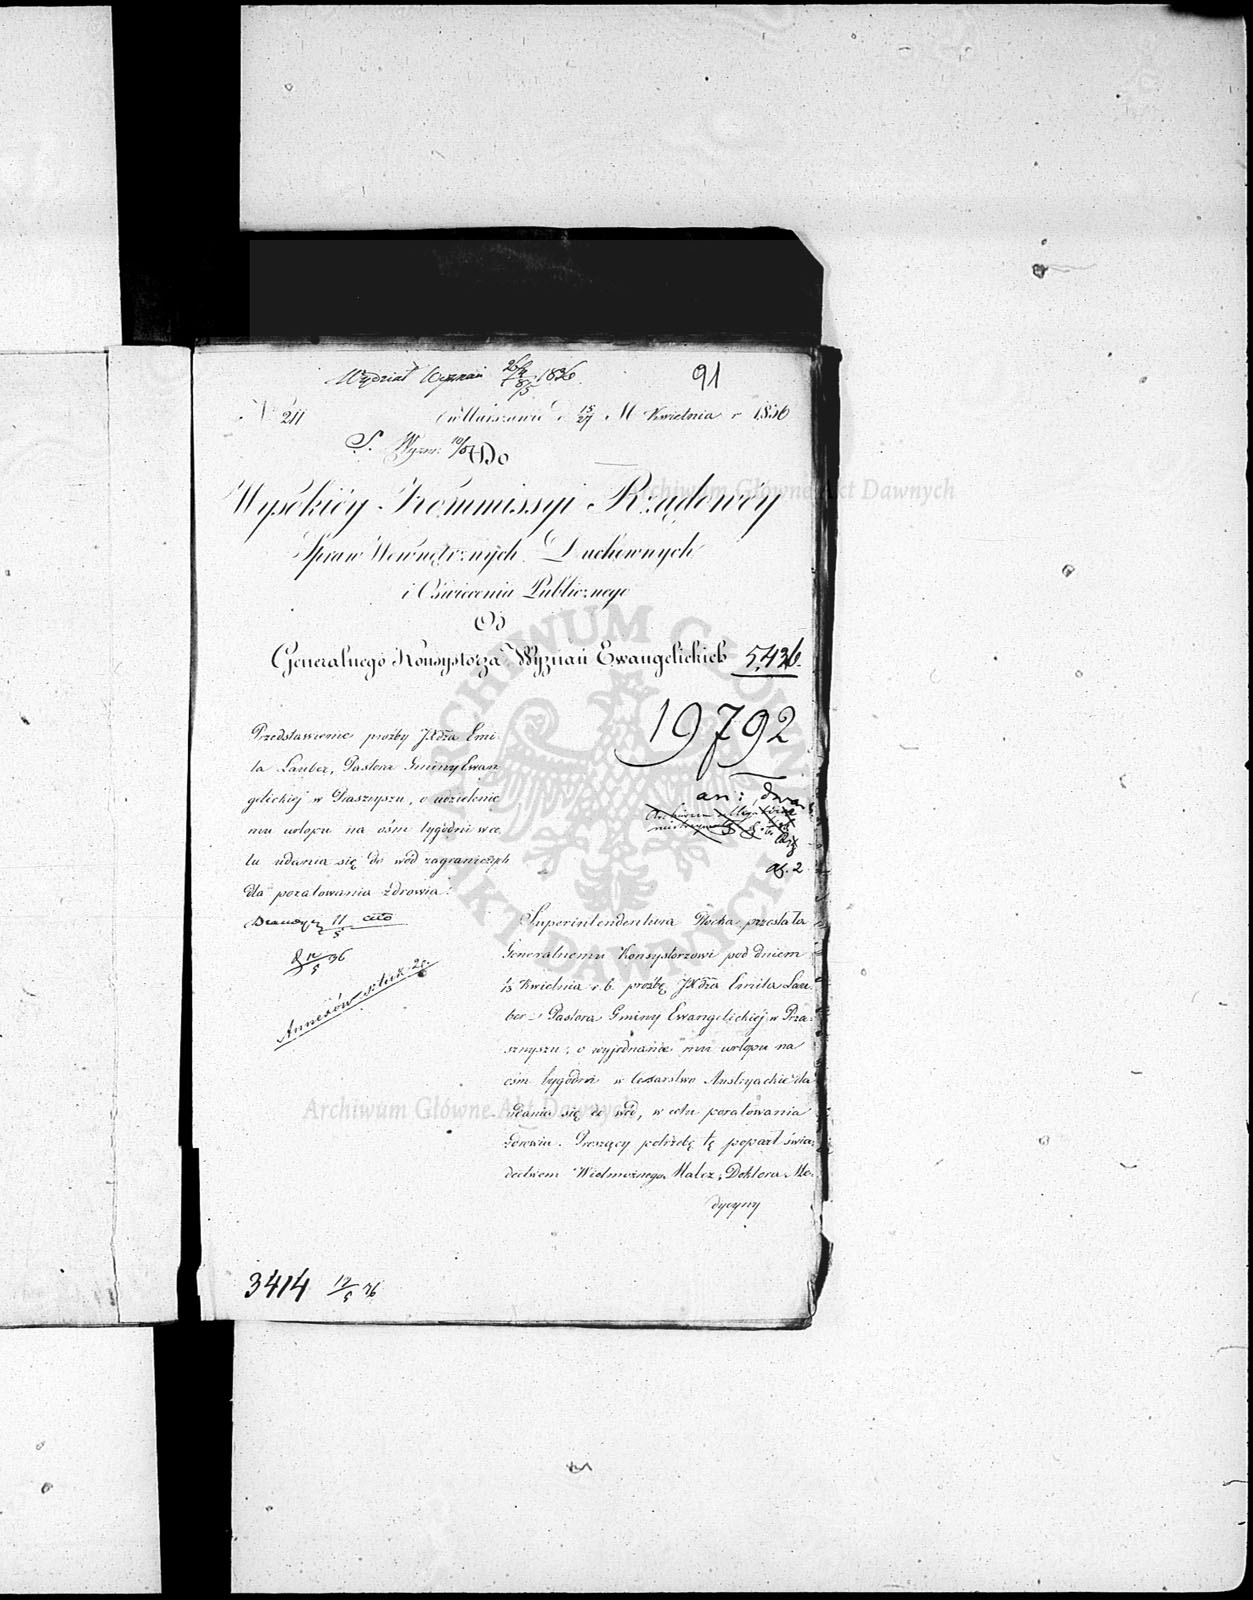 Wydział Wyznań 1836
91
No 211
w Warszawie d. 15/27 M Kwietnia r 1836
Do
Wysokiéy Kommissyi Rządowéy
Spraw Wewnętrznych Duchownych
i Oświecenia Publicznego
Od
Generalnego Konsystorza Wyznań Ewangelickich 5,436.
19792
Przedstawienie proźby JXdza Emi-
la Lauber, Pastora Gminy Ewan
gelickiej w Prasznyszu, o udzielenie
mu urlopu na ośm tygodni w ce-
lu udania się do wód zagranicznych
dla poratowania zdrowia.
11/5 cito
12/5 36
Annexów sztuk 2.
an: dwa
af. 2
Superintendentura Płocka przesłała
Generalnemu Konsystorzowi pod dniem
13 Kwietnia r. b. proźbę JXdza Emila Lau-
ber Pastora Gminy Ewangelickiej w Pra-
sznyszu, o wyjednanie mu urlopu na
ośm tygodni w Cesarstwo Austryackie dla
udania się do wód, w celu poratowania
zdrowia. Proszący potrzebę tę poparł świa-
dectwem Wielmożnego Malcz, Doktora Me-
dycyny
3414 12/5 36
Archiwum Główne Akt Dawnych
ARCHIWUM GŁÓWNE AKT DAWNYCH
Archiwum Główne Akt Dawnych